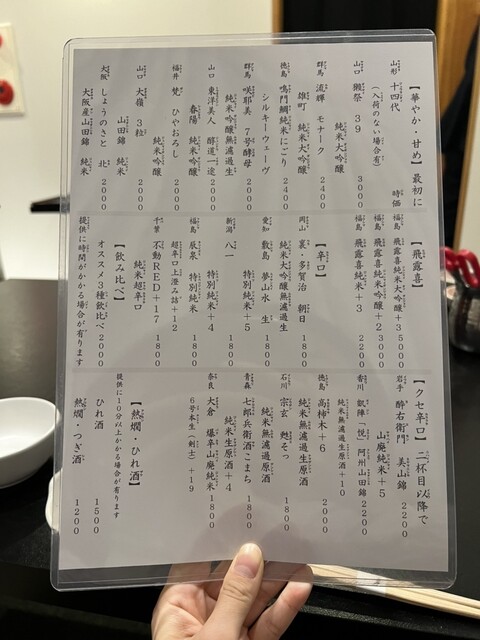 【華やか・甘め】最初に
山形 十四代 時価
(入荷のない場合有)
山口 獺祭 39 3000
純米大吟醸
群馬 流輝 モナーク 2400
雄町 純米大吟醸
徳島 鳴門鯛純米にごり 2400
シルキーウェーヴ
群馬 咲耶美 7号酵母 2000
純米吟醸無濾過生
山口 東洋美人 醇道一途 2000
春陽 純米吟醸
福井 梵 ひやおろし 2000
純米吟醸
山口 大嶺 3粒 2000
山田錦 純米
大阪 しょうのさと 北 2000
大阪産山田錦 純米
【飛露喜】
福島 飛露喜純米大吟醸+3 5000
福島 飛露喜純米吟醸+2 3000
福島 飛露喜純米+3 2200
【辛口】
岡山 裏・多賀治 朝日 1800
純米大吟醸無濾過生
愛知 敷島 夢山水 生 1800
特別純米+5
新潟 八一 1800
特別純米+4
福島 辰泉 特別純米 1800
超辛口上澄み詰+12
千葉 不動RED+17 1800
純米超辛口
【飲み比べ】
オススメ3種飲比べ2000
提供に時間がかかる場合が有ります
【クセ辛口】二杯目以降で
岩手 酔右衛門 美山錦 2200
山廃純米+5
香川 凱陣「悦」阿州山田錦 2200
純米無濾過原酒+10
徳島 高柿木+6 2000
純米無濾過生原酒
石川 宗玄 甦そっ 1800
純米無濾過原酒
青森 七郎兵衛酒こまち 1800
純米生原酒+4
奈良 大倉 爆辛山廃純米 1800
6号本生(剣士)+19
【熱燗・ひれ酒】
提供に10分以上かかる場合が有ります
ひれ酒 1500
熱燗・つぎ酒 1200